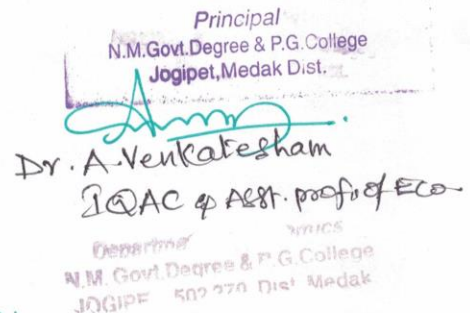 Principal
N.M.Govt.Degree & P.G.College
Jogipet,Medak Dist.
Dr. A.Venkatesham
IQAC & Asst. prof. of Eco
N.M. Govt.Degree & P.G.College
502 270 Dist Medak